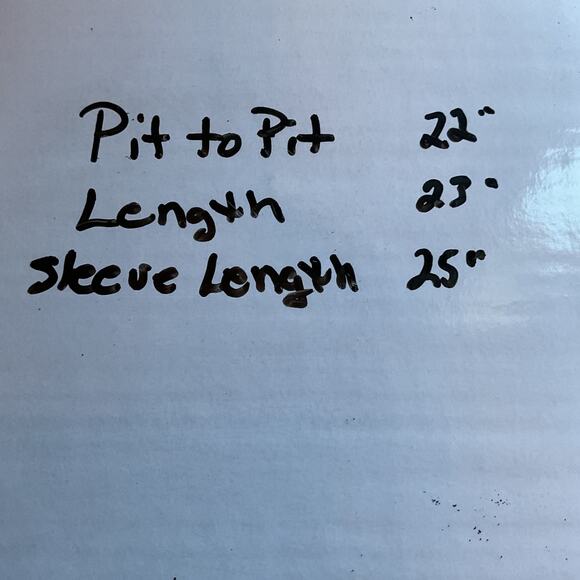 Pit to Pit 22"
Length 23"
Sleeve Length 25"